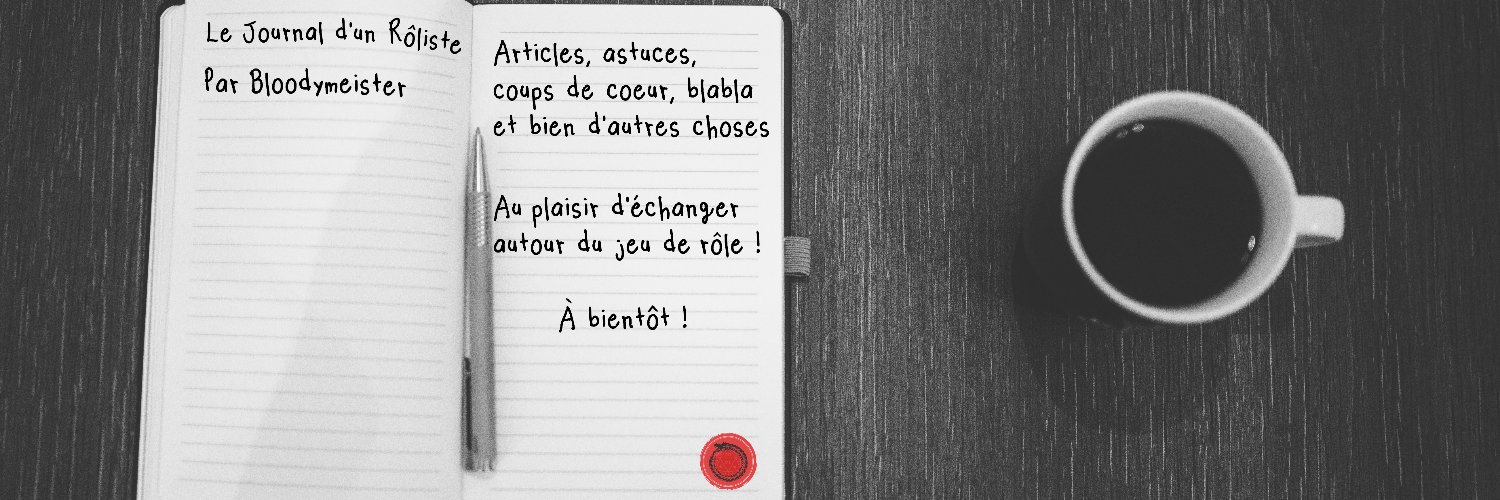 Le Journal d'un Rôliste
Par Bloodymeister
Articles, astuces,
coups de coeur, blabla
et bien d'autres choses
Au plaisir d'échanger
autour du jeu de rôle !
À bientôt !